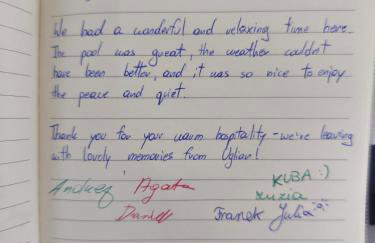 We had a wonderful and relaxing time here.
The pool was great, the weather couldn't
have been better, and it was so nice to enjoy
the peace and quiet.
Thank you for your warm hospitality - we're leaving
with lovely memories from Ugljan!
Andrzej Agata KUBA :)
Zuzia
Daniel Franek Julia